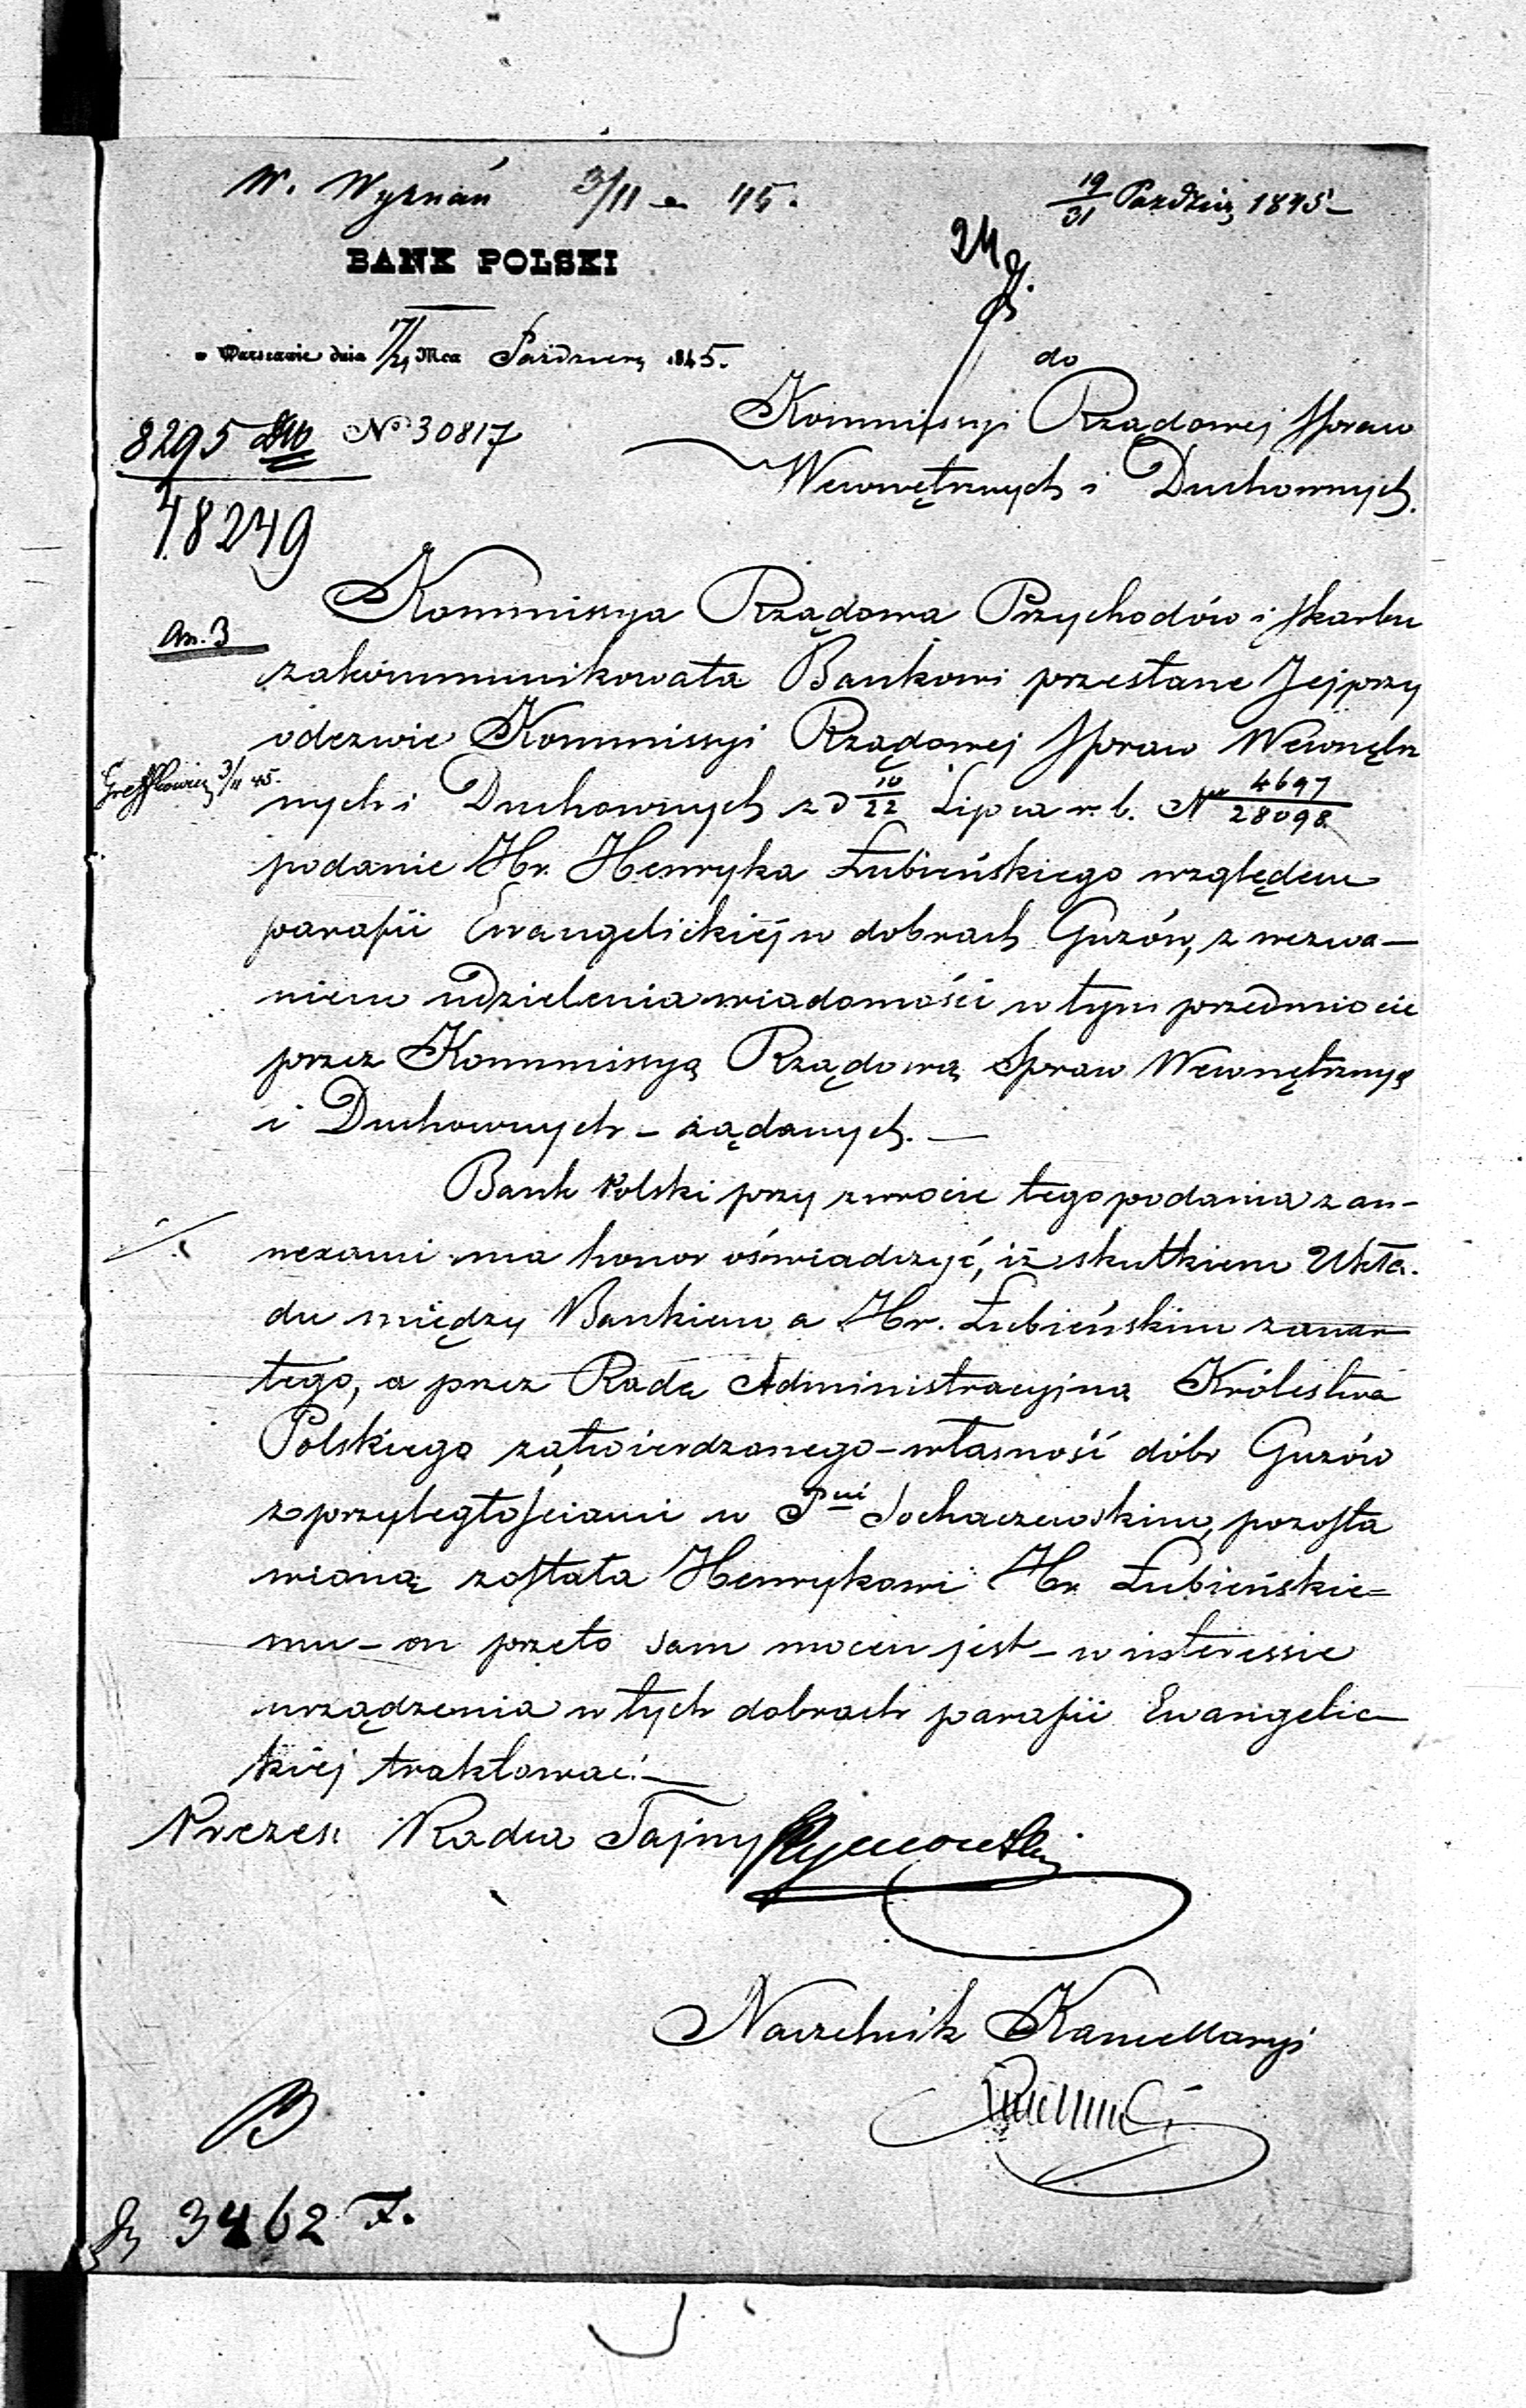 W. Wyznań 3/11 45.
19/31 Paździer 1845
24
BANK POLSKI
w Warszawie dnia 17/29 Mca Październ 1845.
do
8295 No 30817
18249
Kommissyi Rządowej Spraw
Wewnętrznych i Duchownych.
An. 3
Kommissya Rządowa Przychodów i Skarbu
zakommunikowała Bankowi przesłane Jej przy
odezwie Kommissyi Rządowej Spraw Wewnętrz
3/11 45.
nych i Duchownych z d 10/22 Lipca r. b. Nr 4697/28098
podanie Hr. Henryka Łubieńskiego względem
parafii Ewangelickiéj w dobrach Guzów, z wezwa—
niem udzielenia wiadomości w tym przedmiocie
przez Kommissyą Rządową Spraw Wewnętrznych
i Duchownych – żądanych. —
Bank Polski przy zwrocie tego podania z an–
nexami ma honor oświadczyć, iż skutkiem Ukła.
du między Bankiem a Hr. Łubieńskim zawar
tego, a przez Radę Administracyjną Królestwa
Polskiego zatwierdzonego – własność dóbr Guzów
z przyległościami w Pcie Sochaczewskim, pozosta
wioną została Henrykowi Hr. Łubieńskie=
mu – on przeto sam mocen jest – w interessie
urządzenia w tych dobrach parafii Ewangelic—
kiéj traktować. —
Prezes Radca Tajny
Naczelnik Kancellaryi
B
3462 F.